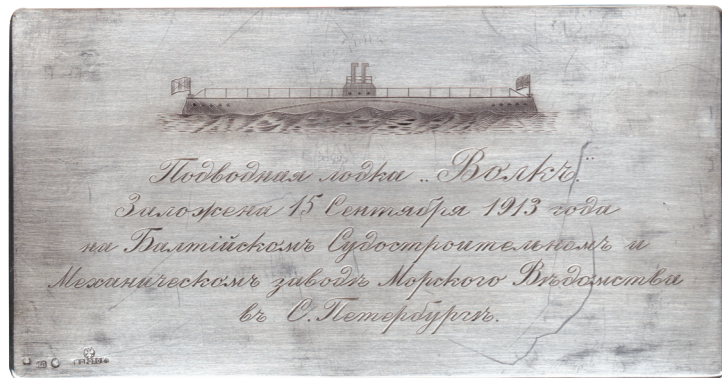 Подводная лодка „Волкъ".
Заложена 15 Сентября 1913 года
на Балтійскомъ Судостроительномъ и
Механическомъ заводѣ Морского Вѣдомства
въ С. Петербургѣ.